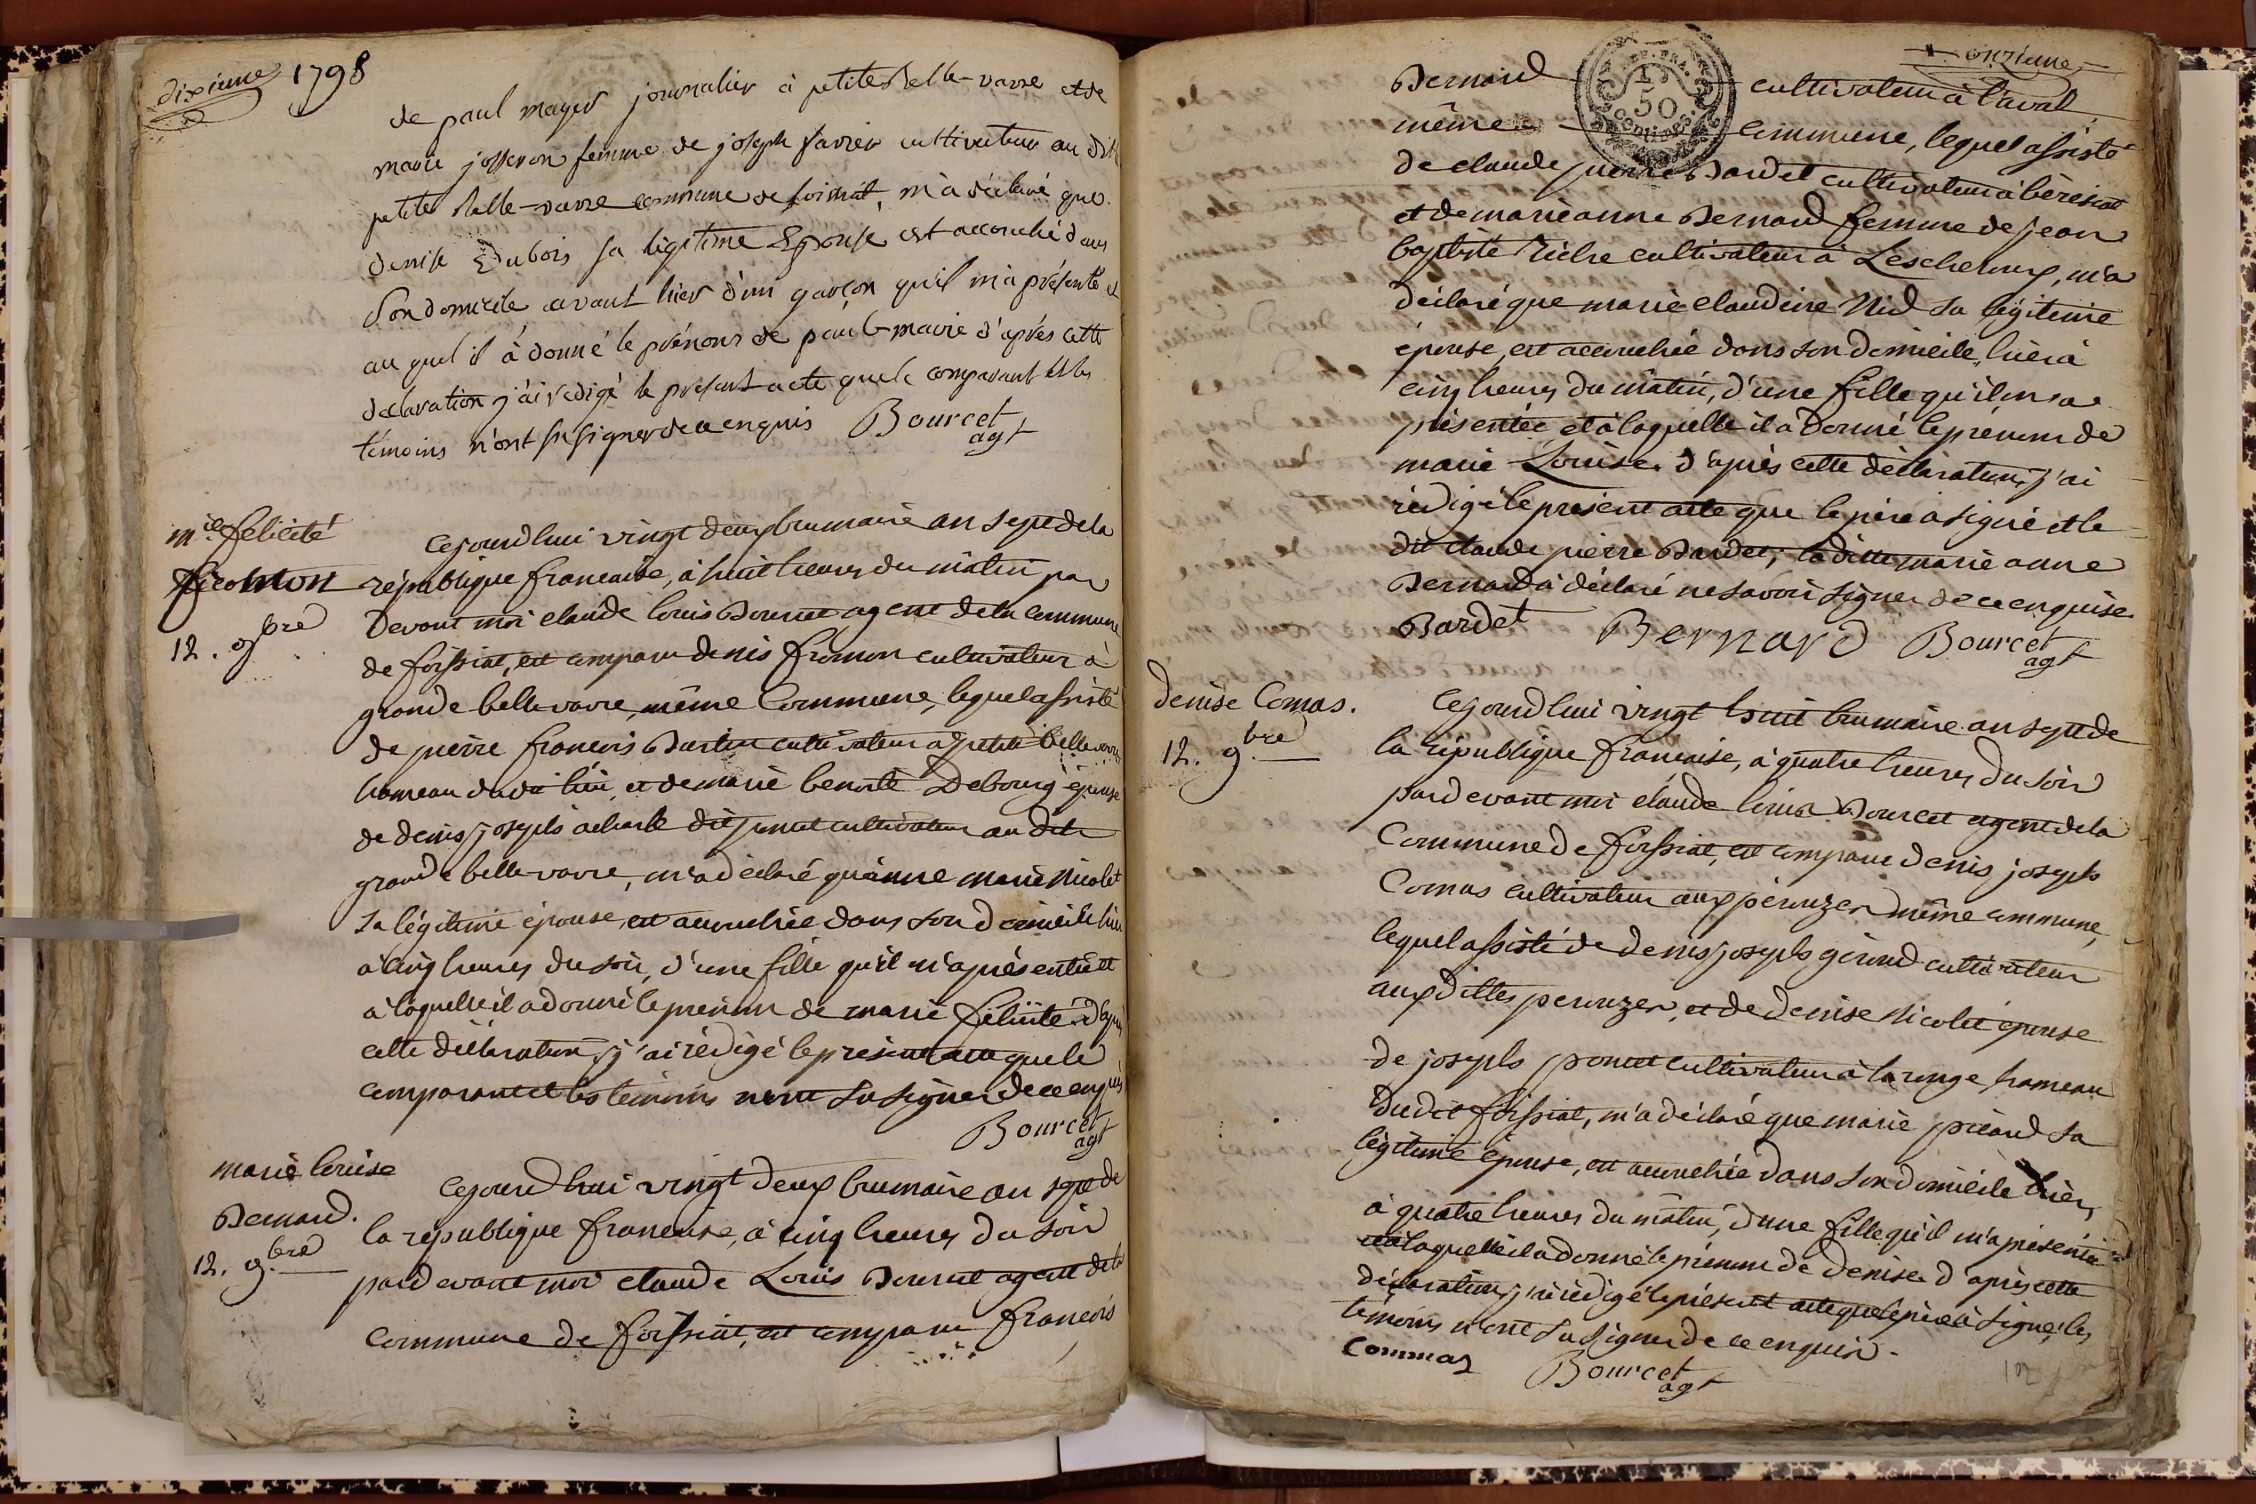 dixieme 1798
de paul mayer journalier à petite Belle-vavre et de
marie josseron femme de joseph favier cultivateur au dit
petite Belle-vavre commune de foissiat, m'à déclaré que
denise Dubois sa légitime Epouse est accouché dans
Son domicile avant hier d'un garçon qu'il m'à présenté et
au quel il à donné le prénoms de paul-marie d'après cette
déclaration j'ai rédigé le présent acte que le comparant et les
témoins n'ont su signer de ce enquis Bourcet
agt
m.ie félicité
fromon
12. 9bre
Cejourd'hui vingt deux brumaire an sept de la
république francaise, à huit heures du matin par
Devant moi claude louis Bourcet agent de la commune
de foissiat, est comparu denis fromon cultivateur à
grande bellevavre, même Commune, lequel assisté
de pierre francois cultivateur à petite bellevavre
hameau du dit lieu, et de marie benoite Debourg épouse
de denis joseph cultivateur au dit
grande bellevavre, m'a déclaré qu'anne marie Nicolet
sa légitime épouse, est accouchée dans son domicile hier
à cinq heures du soir, d'une fille qu'il m'a présentée et
à laquelle il a donné le prénom de marie félicité. D'après
cette déclaration, j'ai rédigé le présent acte que le
comparant et les témoins n'ont su signer de ce enquis
Bourcet
agt
marie louise
Bernard.
12. 9.bre
Cejourd'hui vingt deux brumaire an sept de
la république francaise, à cinq heures du soir
pardevant moi claude Louis Bourcet agent de la
Commune de foissiat, est comparu francois
onzieme
Bernard cultivateur à l'aval
même Commune, lequel assisté
de claude pierre Bardet cultivateur à béresiat
et de marie anne Bernard femme de jean
baptiste Riche cultivateur à Lescheroux, m'a
déclaré que marie claudine Nid sa légitime
épouse, est accouchée dans son domicile, hier à
cinq heures du matin, d'une fille qu'il m'a
présentée et à laquelle il a donné le prénom de
marie Louise. d'après cette déclaration, j'ai
rédigé le présent acte que le père a signé et le
dit claude pierre Bardet; la ditte marie anne
Bernard à déclaré ne savoir signer de ce enquise.
Bardet Bernard Bourcet
agt
denise Comas.
12. 9.bre
Cejourd'hui vingt huit brumaire an sept de
la république francaise, à quatre heures du soir
pardevant moi claude louis Bourcet agent de la
Commune de foissiat, est comparu denis joseph
Comas cultivateur aux perouzes même commune,
lequel assisté de denis joseph girond cultivateur
aux dittes perouzes, et de denise Nicolet épouse
de joseph poncet cultivateur à la ronge hameau
Dudit foissiat, m'a déclaré que marie picard sa
légitime épouse, est accouchée dans son domicile hier
à quatre heures du matin, d'une fille qu'il m'a présentée
et à laquelle il a donné le prénom de denise. D'après cette
déclaration, j'ai rédigé le présent acte que le père à signé, les
témoins n'ont su signer de ce enquis.
Commas Bourcet
agt